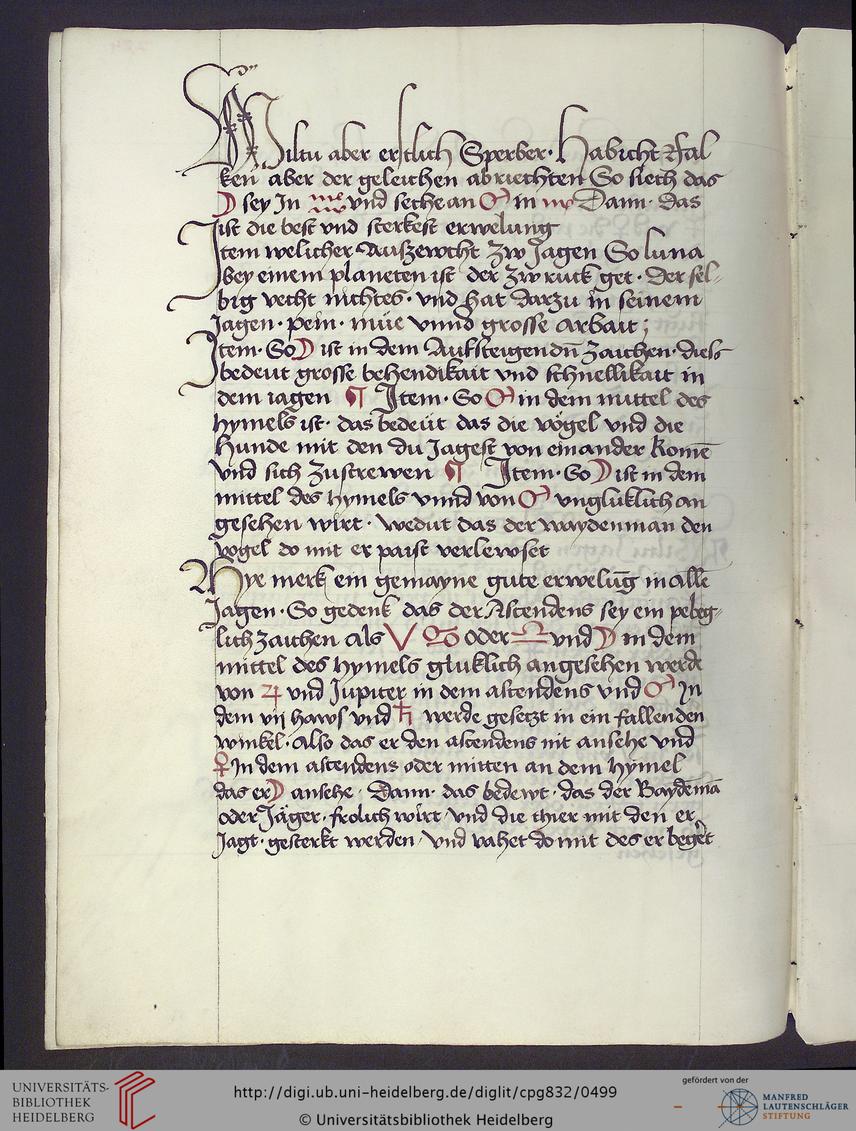 Wiltu aber erstlich Sperber · Habicht Fal
ken aber der geleichen abriechten So siech das
☽ sey In ♒ vnd seche an ♂ in ♏ Dann · das
ist die best vnd sterkest erwelung
Item welicher Auszewcht zw Jagen So luna
bey einem planeten ist der zw ruck get · der sel-
big vecht nichtes · vnd hat darzu in seinem
Jagen · pein · müe vnnd grosse arbait ;
Item · So ☽ ist in dem Aufsteigendn̄ zaichen · dies
bedeut grosse behendikait vnd schnellikait in
dem iagen ¶ Item · So ♂ in dem mittel des
hymels ist · das bedeüt das die vögel vnd die
Hunde mit den du Jagest von einander komē
vnd sich zustrewen ¶ Item · So ☽ ist in dem
mittel des hymels vnnd von ♂ vnglüklich an
gesehen wirt · wedüt das der waydenman den
vogel do mit er paist verlewset
Nye merk ein gemayne gute erwelūg in alle
Jagen · So gedenk das der Ascendens sey ein pebeg-
lich zaichen als ♈ ♋ oder ♎ vnd ☽ in dem
mittel des hymels gluklich angesehen werde
von ♃ vnd Jupiter in dem ascendens vnd ♂ In
dem vij haws vnd ♄ werde gesetzt in ein fallenden
winkel · also das er den ascendens nit ansehe vnd
♀ In dem ascendens oder mitten an dem hymel
das er ☽ ansehe · Dann · das bedewt · das der Baydēmā
oder Jäger · frolich wirt · vnd die thier mit den er
Jagt · gesterkt werden · vnd vahet do mit des er begert
UNIVERSITÄTS-
BIBLIOTHEK
HEIDELBERG
http://digi.ub.uni-heidelberg.de/diglit/cpg832/0499
© Universitätsbibliothek Heidelberg
gefördert von der
MANFRED
LAUTENSCHLÄGER
STIFTUNG